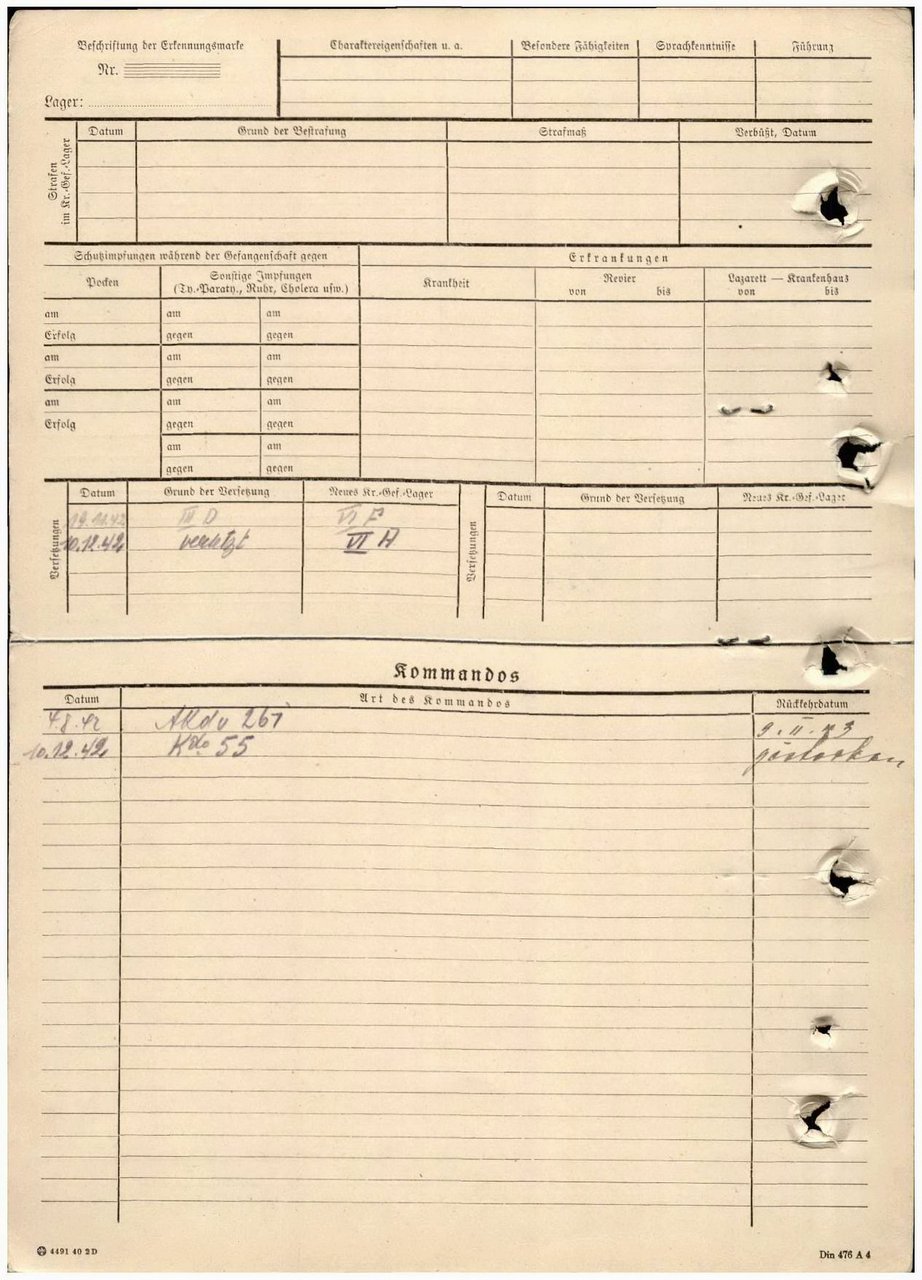 Beschriftung der Erkennungsmarke
Nr.
Lager:
Charaktereigenschaften u. a.
Besondere Fähigkeiten
Sprachkenntnisse
Führung
Strafen im Kr.-Gef.-Lager
Datum
Grund der Bestrafung
Strafmaß
Verbüßt, Datum
Schutzimpfungen während der Gefangenschaft gegen
Erkrankungen
Pocken
Sonstige Impfungen
(Ty.-Paraty., Ruhr, Cholera usw.)
Krankheit
Revier
von bis
Lazarett — Krankenhaus
von bis
am am am
Erfolg gegen gegen
am am am
Erfolg gegen gegen
am am am
Erfolg gegen gegen
am am
gegen gegen
Versetzungen
Datum Grund der Versetzung Neues Kr.-Gef.-Lager
19.11.42 III D VI F
10.12.42 versetzt VI A
Versetzungen
Datum Grund der Versetzung Neues Kr.-Gef.-Lager
Kommandos
Datum Art des Kommandos Rückkehrdatum
4.8.42 AKdo 261 9.II.43
10.12.42 Kdo 55 gestorben
4491 40 2 D
Din 476 A 4